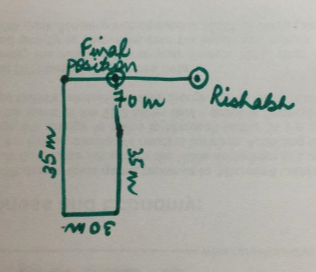 Final
position
70 m
Rishabh
35m
35m
30m